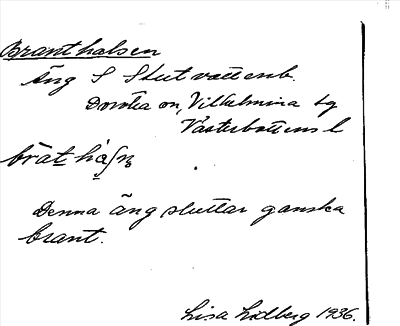 Branthalsen
Äng S Slutvattenb.
Dorotea on, Vilhelmina tg
Västerbottens l
Denna äng sluttar ganska
brant.
Lisa Lidberg 1936.